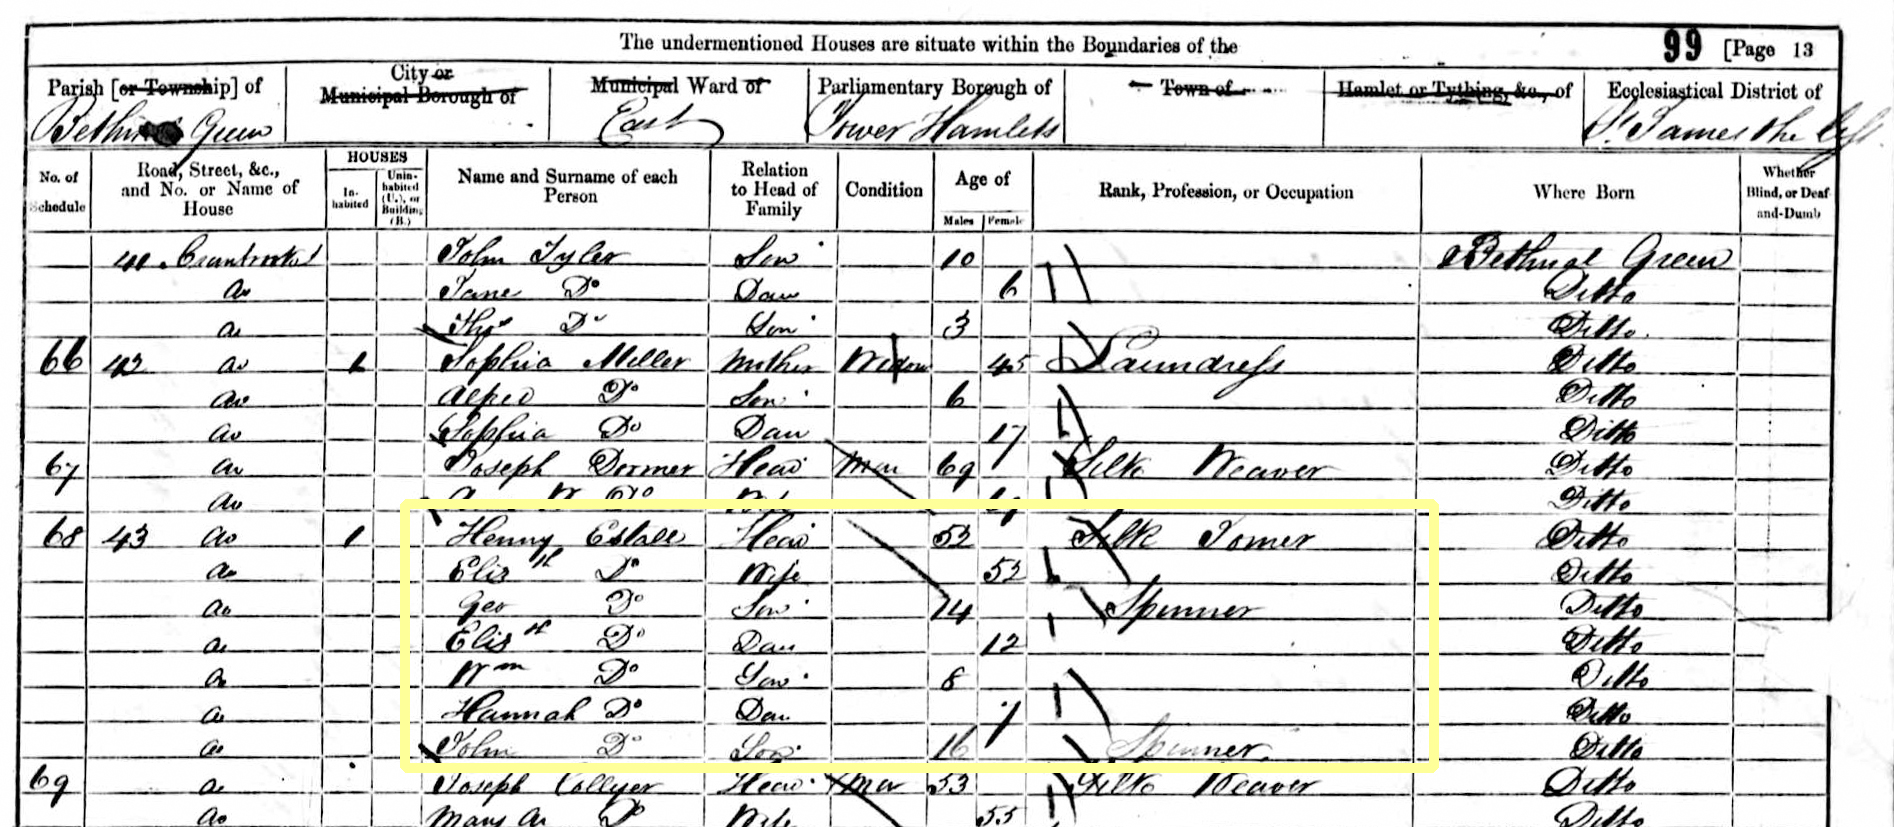 The undermentioned Houses are situate within the Boundaries of the 99 [Page 13
Parish [or Township] of City or Municipal Borough of Municipal Ward of Parliamentary Borough of Town of Hamlet or Tything, &c., of Ecclesiastical District of
Bethnal Green East Tower Hamlets St James the Less
No. of Schedule Road, Street, &c., and No. or Name of House HOUSES Inhabited Uninhabited (U.), or Building (B.) Name and Surname of each Person Relation to Head of Family Condition Age of Males Females Rank, Profession, or Occupation Where Born Whether Blind, or Deaf-and-Dumb
41 John Tyler Son 10 Bethnal Green
Do Jane Do Dau 6 Ditto
Do Thos Do Son 3 Ditto
66 42 Do 1 Sophia Miller Mother Widow 45 Laundress Ditto
Do Alfred Do Son 6 Ditto
Do Sophia Do Dau 17 Ditto
67 Do Joseph Dormer Head Mar 69 Silk Weaver Ditto
Do Do Wife Ditto
68 43 Do 1 Henry Estall Head 52 Silk Ditto
Do Elizth Do Wife 52 Ditto
Do Geo Do Son 14 Spinner Ditto
Do Elizth Do Dau 12 Ditto
Do Wm Do Son 8 Ditto
Do Hannah Do Dau 7 Ditto
Do John Do Son 16 Spinner Ditto
69 Do Joseph Collyer Head Mar 53 Silk Weaver Ditto
Do Mary An Do Wife 55 Ditto